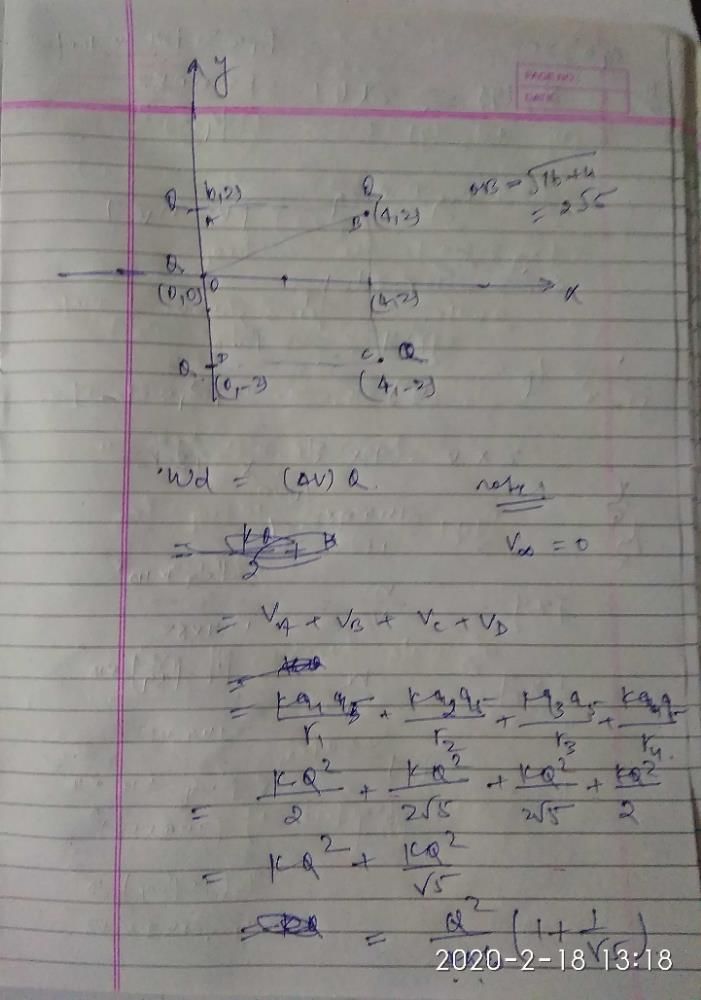 PAGE NO
DATE
y
Q (0,2) A
Q B (4,2)
OB = √16+4
= 2√5
Q (0,0) O
(4,2)
x
Q D (0,-2)
C Q (4,-2)
Wd = (ΔV) Q
V∞ = 0
= VA + VB + VC + VD
= Kq1q5/r1 + Kq2q5/r2 + Kq3q5/r3 + Kq4q5/r4
= KQ²/2 + KQ²/2√5 + KQ²/2√5 + KQ²/2
= KQ² + KQ²/√5
= Q² (1 + 1/√5)
2020-2-18 13:18